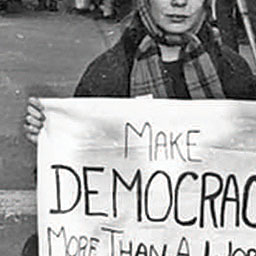 MAKE
DEMOCRAC
MORE THAN A WOR